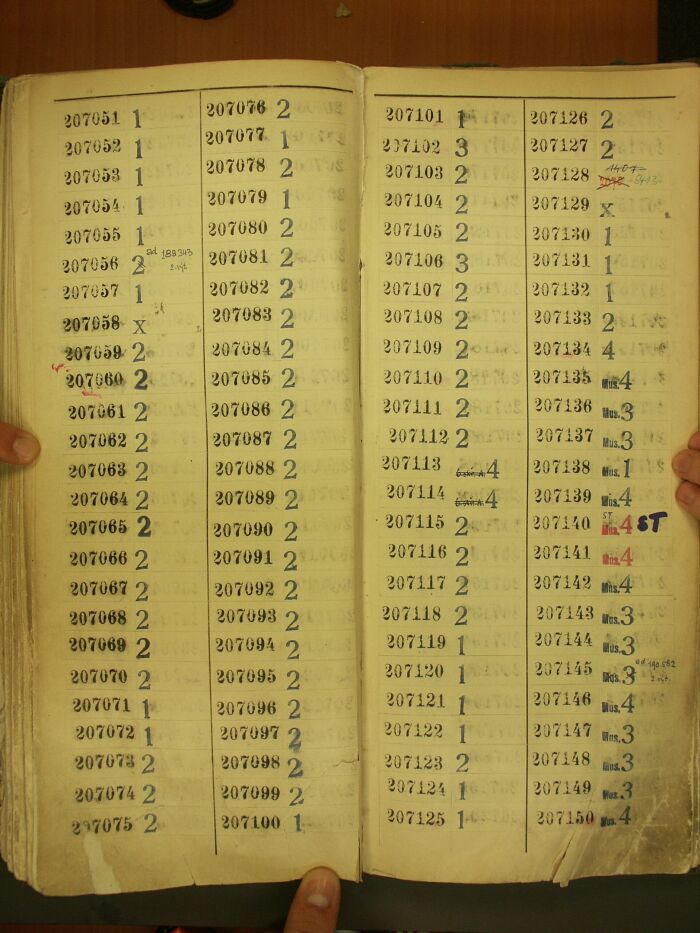 207051 1
207052 1
207053 1
207054 1
207055 1
207056 2 ad 188343
2.výt.
207057 1
207058 X
207059 2
207060 2
207061 2
207062 2
207063 2
207064 2
207065 2
207066 2
207067 2
207068 2
207069 2
207070 2
207071 1
207072 1
207073 2
207074 2
207075 2
207076 2
207077 1
207078 2
207079 1
207080 2
207081 2
207082 2
207083 2
207084 2
207085 2
207086 2
207087 2
207088 2
207089 2
207090 2
207091 2
207092 2
207093 2
207094 2
207095 2
207096 2
207097 2
207098 2
207099 2
207100 1
207101 1
207102 3
207103 2
207104 2
207105 2
207106 3
207107 2
207108 2
207109 2
207110 2
207111 2
207112 2
207113 4
207114 4
207115 2
207116 2
207117 2
207118 2
207119 1
207120 1
207121 1
207122 1
207123 2
207124 1
207125 1
207126 2
207127 2
207128
207129 X
207130 1
207131 1
207132 1
207133 2
207134 4
207135 Mus. 4
207136 Mus. 3
207137 Mus. 3
207138 Mus. 1
207139 Mus. 4
ST
207140 Mus. 4 ST
207141 Mus. 4
207142 Mus. 4
207143 Mus. 3
207144 Mus. 3
207145 Mus. 3 ad 190.562
2.výt.
207146 Mus. 4
207147 Mus. 3
207148 Mus. 3
207149 Mus. 3
207150 Mus. 4